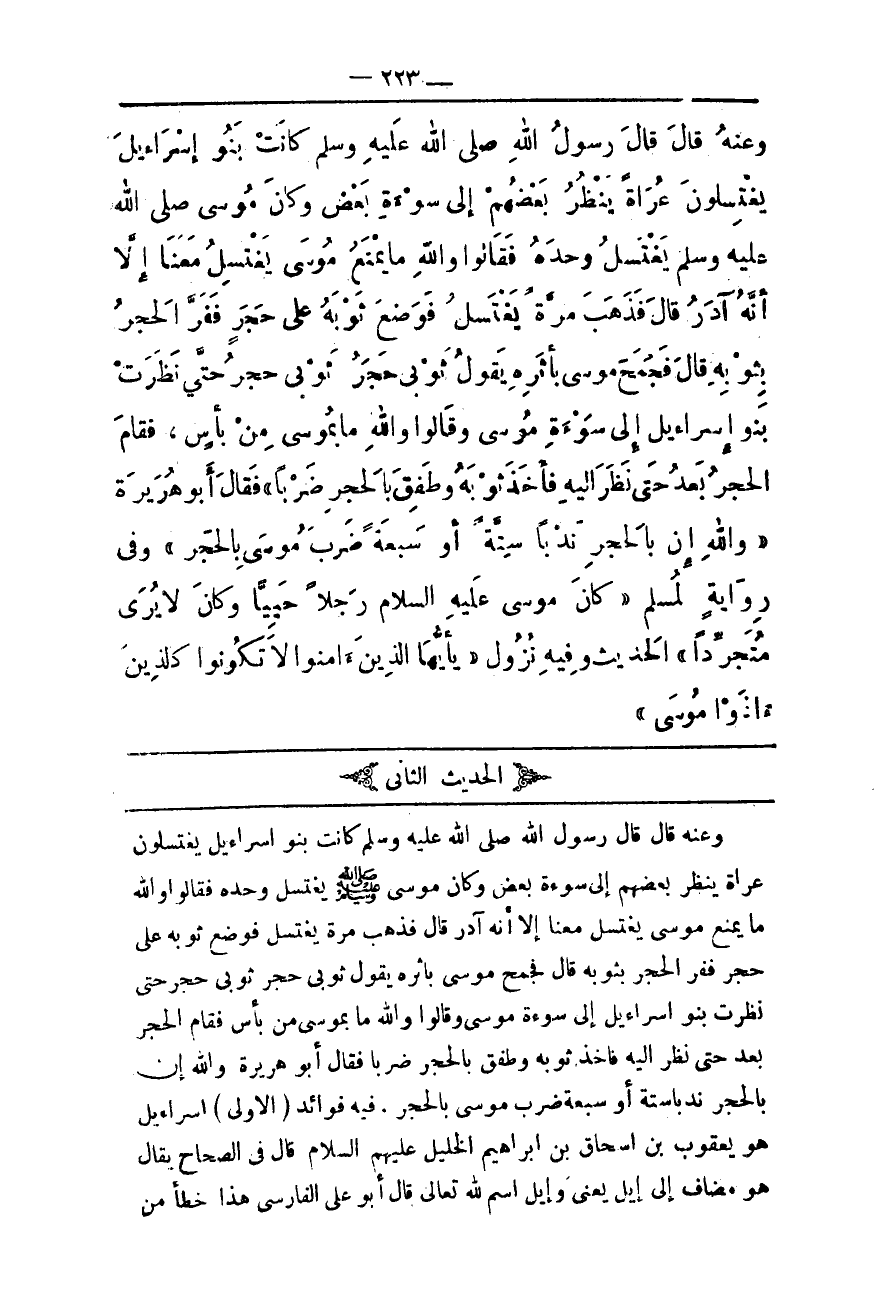 — ٢٢٣ —
وعنهُ قالَ قالَ رسولُ اللهِ صلى الله عَليهِ وسلم كانَتْ بَنُو إسْرَاءيلَ
يغْتِسلونَ عُرَاةً يَنْظُرُ بَعْضُهُمْ إلى سوْءَةِ بَعْض وكانَ مُوسى صلى الله
عليه وسلم يَغْتَسلُ وحدَهُ فقَالُوا واللهِ مايمْنَعُ مُوسَى يَغْتسِلُ مَعَنَا إلَّا
أنَّهُ آدَرُ قالَ فَذَهَبَ مرَّةً يَغْتَسلُ فوَضعَ ثوْبَهُ على حَجَرٍ فَفَرَّ الحجرُ
بِثوْبِهِ قالَ فَجَمَحَ موسى بأثَرِهِ يَقولُ ثوْبى حَجَرُ ثوْبى حجرُ حتَّي نَظَرَتْ
بَنو إسراءيل إلى سَوْءَةِ مُوسى وقَالوا واللهِ مابمُوسى مِنْ بأسٍ ، فقامَ
الحجرُ بَعدُ حَتى نَظَرَ اليهِ فأخَذَ ثوْبَهُ وطَفِقَ بالحجرِ ضَرْباً» فقالَ أبو هُرَيرةَ
« واللهِ إن بالحجرِ ندْباً سِتَّةً أو سَبعةً ضَربَ مُوسَى بِالحَجر » وفى
رِوَايةٍ لمُسلم « كانَ موسى عَليهِ السلام رَجلاً حَيِيًّا وكانَ لايُرَى
مُتَجرِّداً » الحديث وفِيهِ نُزُول « يأيُّهَا الذينَ ءامنوا لاَ تكُونوا كالذِينَ
ءاذَوْا مُوسَى »
الحديث الثانى
وعنه قال قال رسول الله صلى الله عليه وسلم كانت بنو اسراءيل يغتسلون
عراة ينظر بعضهم إلى سوءة بعض وكان موسى ﷺ يغتسل وحده فقالوا والله
ما يمنع موسى يغتسل معنا إلا أنه آدر قال فذهب مرة يغتسل فوضع ثوبه على
حجر ففر الحجر بثوبه قال فجمح موسى باثره يقول ثوبى حجر ثوبى حجر حتى
نظرت بنو اسراءيل إلى سوءة موسى وقالوا والله ما بموسى من بأس فقام الحجر
بعد حتى نظر اليه فاخذ ثوبه وطفق بالحجر ضربا فقال أبو هريرة والله إن
بالحجر ندباستة أو سبعة ضرب موسى بالحجر . فيه فوائد ( الاولى ) اسراءيل
هو يعقوب بن اسحاق بن ابراهيم الخليل عليهم السلام قال فى الصحاح يقال
هو مضاف إلى إيل يعنى وإيل اسم لله تعالى قال أبو على الفارسى هذا خطأ من